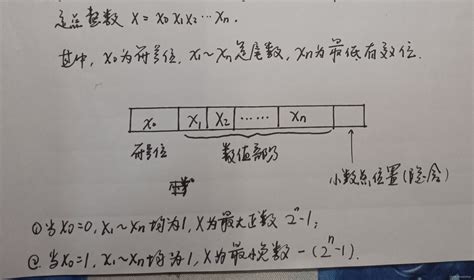 定点整数 X = x₀ x₁ x₂ … xₙ.
其中, x₀为符号位, x₁~xₙ是尾数, xₙ为最低有效位.
x₀ x₁ x₂ …… xₙ
符号位 数值部分 小数点位置(隐含)
①当x₀=0, x₁~xₙ均为1, X为最大正数 2ⁿ-1;
②当x₀=1, x₁~xₙ均为1, X为最小负数 -(2ⁿ-1).